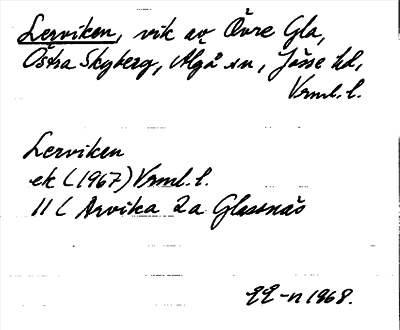 Lerviken, vik av Övre Gla,
Östra Skyberg, Älgå sn, Jösse hd,
Vrml. l.
Lerviken
ek (1967) Vrml. l.
11 C Arvika 2a Glassnäs
-n 1968.